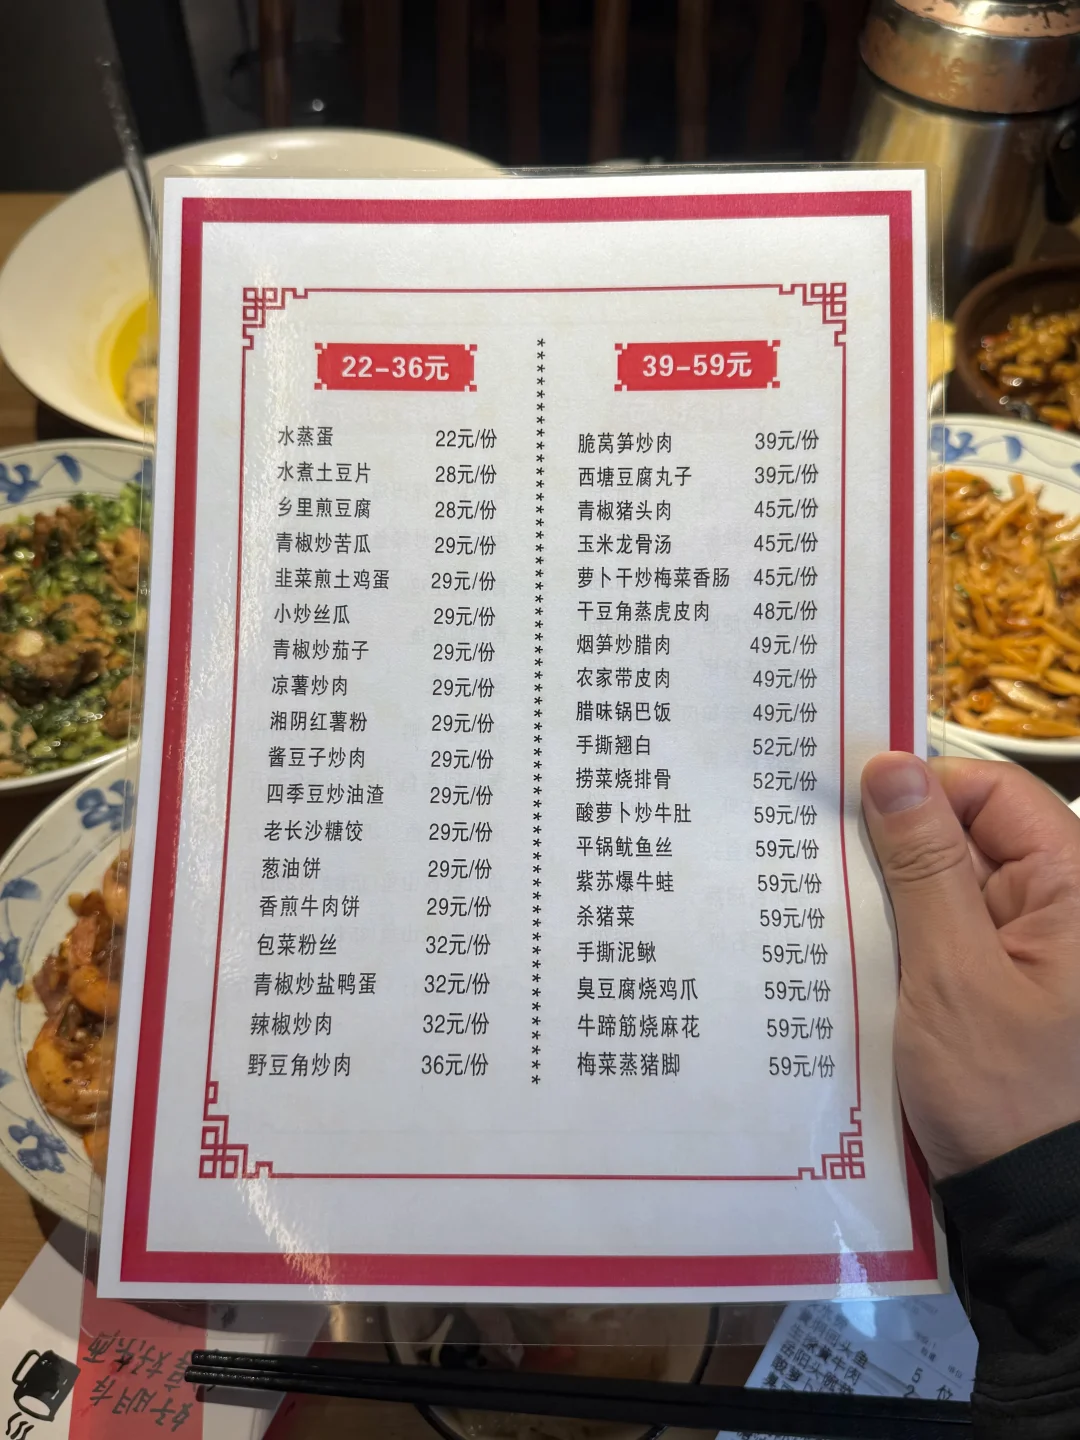 22-36元
水蒸蛋 22元/份
水煮土豆片 28元/份
乡里煎豆腐 28元/份
青椒炒苦瓜 29元/份
韭菜煎土鸡蛋 29元/份
小炒丝瓜 29元/份
青椒炒茄子 29元/份
凉薯炒肉 29元/份
湘阴红薯粉 29元/份
酱豆子炒肉 29元/份
四季豆炒油渣 29元/份
老长沙糖饺 29元/份
葱油饼 29元/份
香煎牛肉饼 29元/份
包菜粉丝 32元/份
青椒炒盐鸭蛋 32元/份
辣椒炒肉 32元/份
野豆角炒肉 36元/份
39-59元
脆莴笋炒肉 39元/份
西塘豆腐丸子 39元/份
青椒猪头肉 45元/份
玉米龙骨汤 45元/份
萝卜干炒梅菜香肠 45元/份
干豆角蒸虎皮肉 48元/份
烟笋炒腊肉 49元/份
农家带皮肉 49元/份
腊味锅巴饭 49元/份
手撕翘白 52元/份
捞菜烧排骨 52元/份
酸萝卜炒牛肚 59元/份
平锅鱿鱼丝 59元/份
紫苏爆牛蛙 59元/份
杀猪菜 59元/份
手撕泥鳅 59元/份
臭豆腐烧鸡爪 59元/份
牛蹄筋烧麻花 59元/份
梅菜蒸猪脚 59元/份
5 位